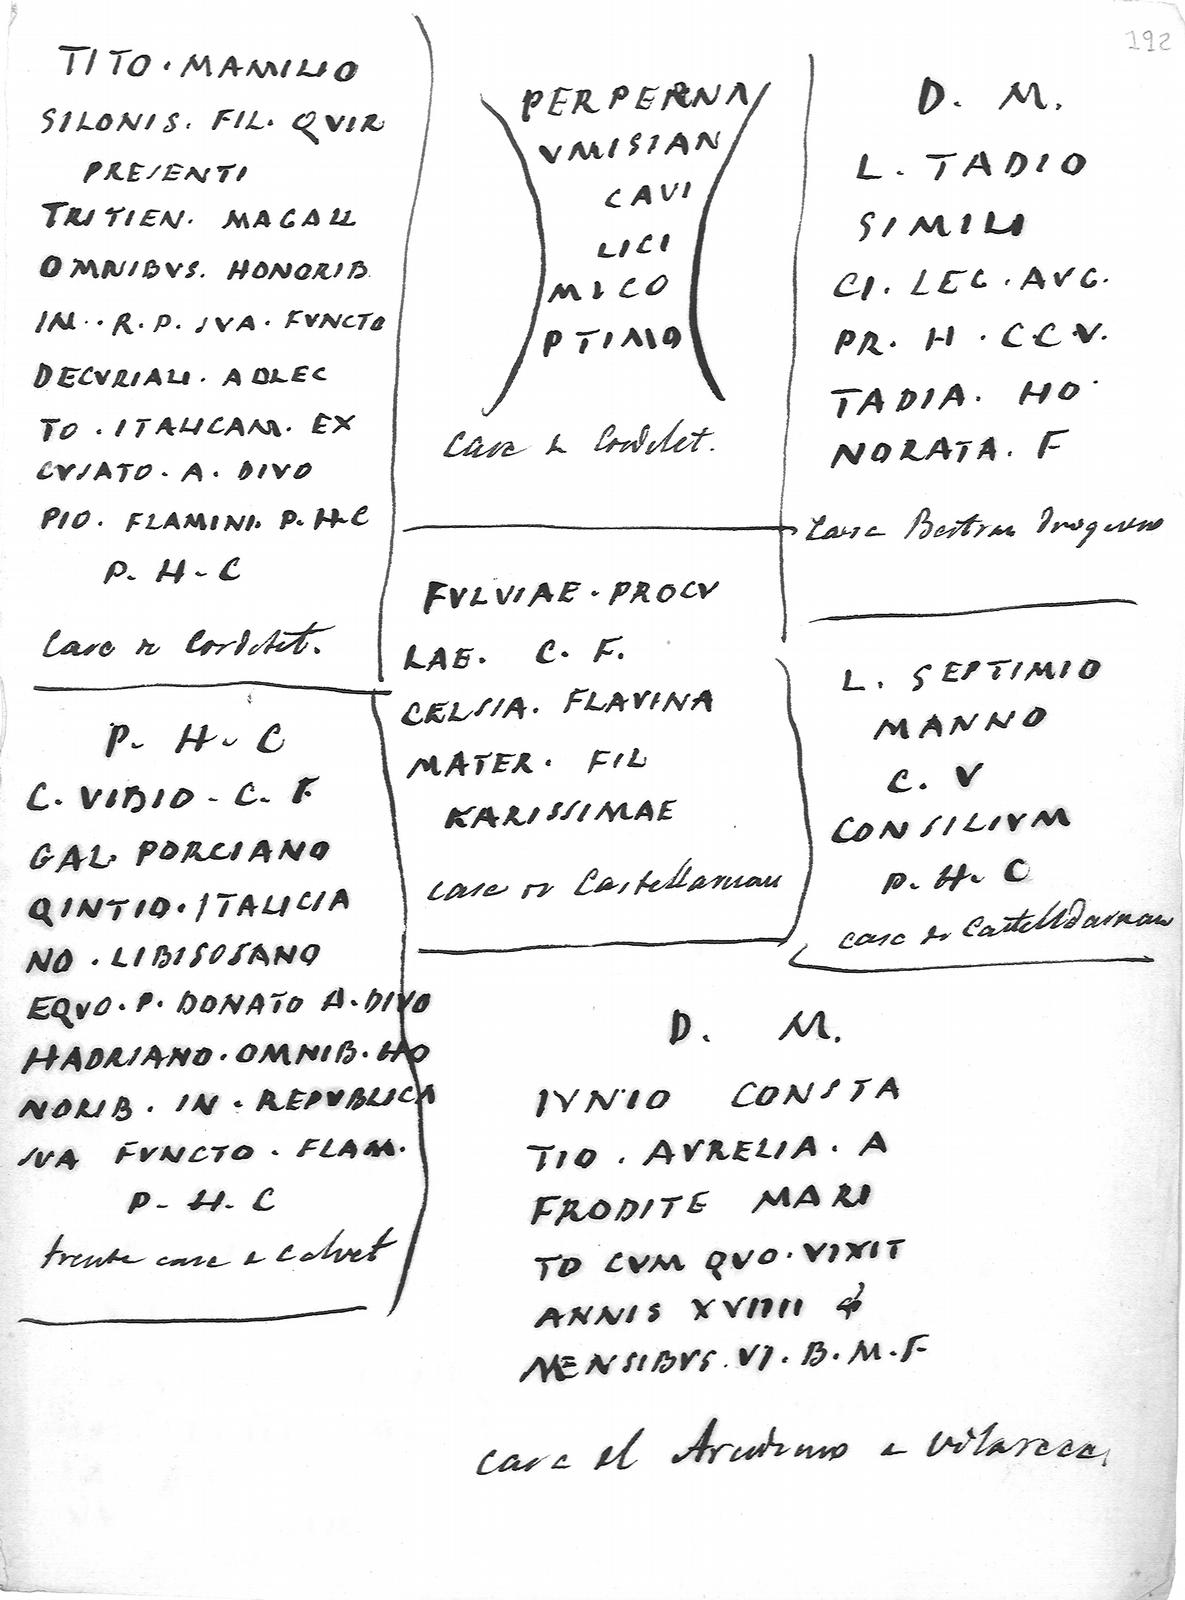 192
TITO · MAMILIO
SILONIS. FIL. QVIR
PRESENTI
TRITIEN. MAGALL
OMNIBVS. HONORIB
IN · · R. P. SVA. FVNCTO
DECVRIALI. ADLEC
TO · ITALICAM. EX
CVSATO. A. DIVO
PIO. FLAMINI. P. H-C
P. H-C
Case de Cordelet.
P. H. C
C. VIBIO - C. F
GAL PORCIANO
QINTIO · ITALICIA
NO · LIBISOSANO
EQVO. P. DONATO A. DIVO
HADRIANO. OMNIB. HO
NORIB. IN. REPVBLICA
SVA FVNCTO. FLAM.
P - H - C
frente case de Calvet
PERPERNA
VMISIAN
CAVI
LICI
MICO
PTIMO
Case de Cordelet.
FVLVIAE · PROCV
LAE. C. F.
CELSIA. FLAVINA
MATER. FIL
KARISSIMAE
case de Castellarnau
D. M.
L. TADIO
SIMILI
CI. LEG. AVG.
PR. H. CCV.
TADIA. HO
NORATA. F
Case Beltran
L. SEPTIMIO
MANNO
C. V
CONSILIVM
P. H. C
case de Castelldarnau
D. M.
IVNIO CONSTA
TIO. AVRELIA. A
FRODITE MARI
TO CVM QVO · VIXIT
ANNIS XVIIII
MENSIBVS. VI. B. M. F
case el de Vilaseca.